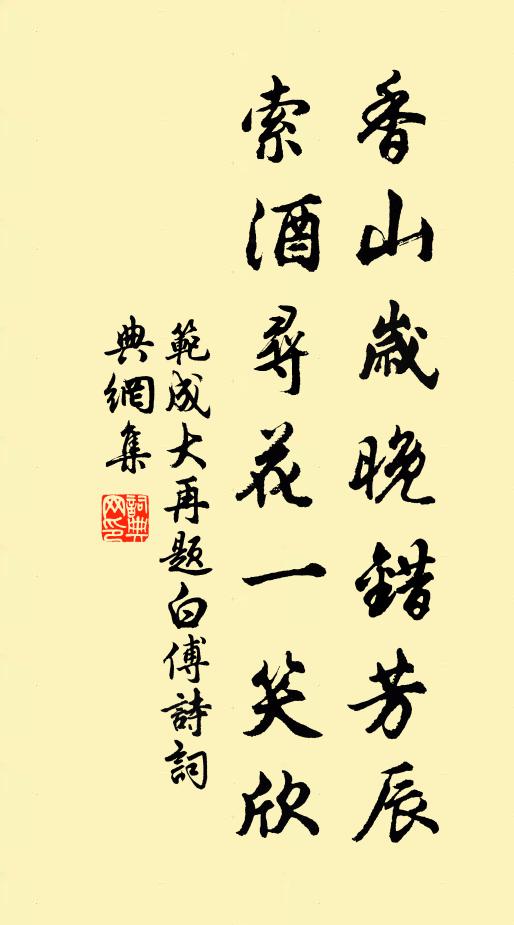 香山歲晚錯芳辰
索酒尋花一笑欣
範成大再题白傅詩詞
典網集
詞典
网印